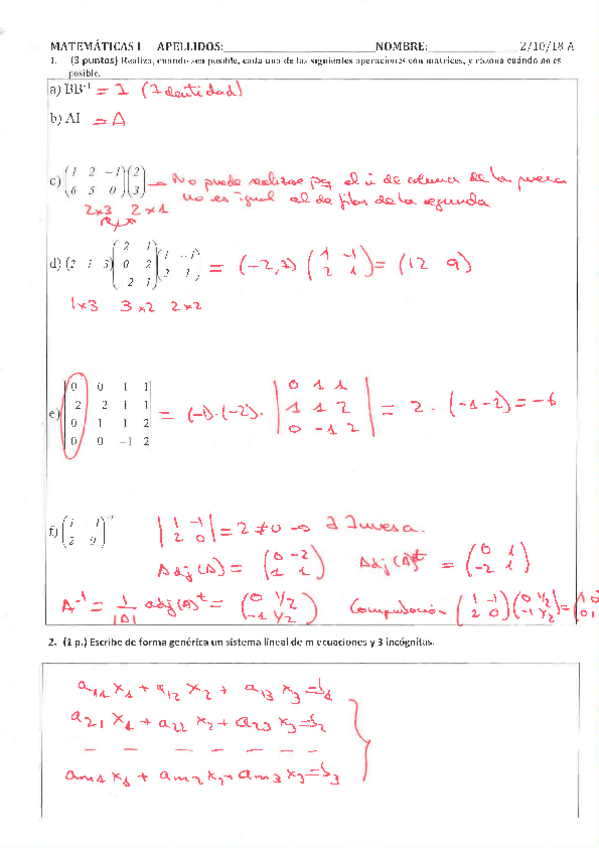 MATEMÁTICAS I APELLIDOS:____________________NOMBRE:____________ 2/10/18 A
1. (3 puntos) Realiza, cuando sea posible, cada una de las siguientes operaciones con matrices, y razona cuándo no es
posible.
a) BB⁻¹ = I (Identidad)
b) AI = A
c) (1 2 -1; 6 5 0)(2; 3) → No puede realizarse pq el nº de columnas de la primera
no es igual al de filas de la segunda
2x3 2x1
d) (2 1 3)(2 1; 0 2; -2 1)(1 -1; 2 1) = (-2, 7) (1 -1; 2 1) = (12 9)
1x3 3x2 2x2
e) |0 0 1 1; -2 -2 1 1; 0 1 1 2; 0 0 -1 2| = (-1)·(-2)· |0 1 1; 1 1 2; 0 -1 2| = 2 · (-1-2) = -6
f) |1 -1; 2 0| = 2 ≠ 0 → ∃ Inversa.
Adj(A) = (0 -2; 1 1) Adj(A)ᵗ = (0 1; -2 1)
A⁻¹ = 1/|A| adj(A)ᵗ = (0 1/2; -1 1/2) Comprobación (1 -1; 2 0)(0 1/2; -1 1/2) = (1 0; 0 1
2. (1 p.) Escribe de forma genérica un sistema lineal de m ecuaciones y 3 incógnitas.
a₁₁ x₁ + a₁₂ x₂ + a₁₃ x₃ = b₁
a₂₁ x₁ + a₂₂ x₂ + a₂₃ x₃ = b₂
– – – – – – –
am₁ x₁ + am₂ x₂ + am₃ x₃ = b₃